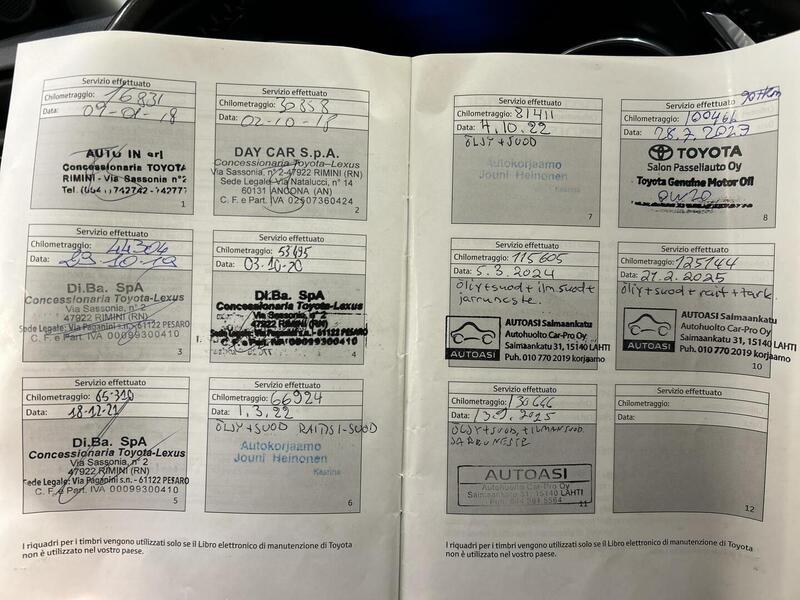 Servizio effettuato
Chilometraggio: 16831
Data: 09-01-18
AUTO IN srl
Concessionaria TOYOTA
RIMINI - Via Sassonia n°2
1
Servizio effettuato
Chilometraggio: 30358
Data: 02-10-18
DAY CAR S.p.A.
Concessionaria Toyota-Lexus
Via Sassonia, n° 2-47922 RIMINI (RN)
Sede Legale: Via Natalucci, n° 14
60131 ANCONA (AN)
C. F. e Part. IVA 02507360424
2
Servizio effettuato
Chilometraggio: 44304
Data: 23-10-19
Di.Ba. SpA
Concessionaria Toyota-Lexus
Via Sassonia, n° 2
47922 RIMINI (RN)
Sede Legale: Via Paganini s.n. - 61122 PESARO
C. F. e Part. IVA 00099300410
3
Servizio effettuato
Chilometraggio: 53495
Data: 03-10-20
Di.Ba. SpA
Concessionaria Toyota-Lexus
Via Sassonia, n° 2
47922 RIMINI (RN)
Sede Legale: Via Paganini s.n. - 61122 PESARO
C. F. e Part. IVA 00099300410
4
Servizio effettuato
Chilometraggio: 65-310
Data: 18-12-21
Di.Ba. SpA
Concessionaria Toyota-Lexus
Via Sassonia, n° 2
47922 RIMINI (RN)
Sede Legale: Via Paganini s.n. - 61122 PESARO
C. F. e Part. IVA 00099300410
5
Servizio effettuato
Chilometraggio: 66924
Data: 1.3.22
ÖLJY+SUOD RAITISI-SUOD
Autokorjaamo
Jouni Heinonen
Kastria
6
I riquadri per i timbri vengono utilizzati solo se il Libro elettronico di manutenzione di Toyota
non è utilizzato nel vostro paese.
Servizio effettuato
Chilometraggio: 81411
Data: 4.10.22
ÖLJY+SUOD
Autokorjaamo
Jouni Heinonen
Kastria
7
Servizio effettuato
Chilometraggio: 100466
Data: 28.7.2023
TOYOTA
Salon Passeliauto Oy
Toyota Genuine Motor Oil
0W20
8
Servizio effettuato
Chilometraggio: 115605
Data: 5.3.2024
öljy+suod+ilm.suod+
jarruneste.
AUTOASI
AUTOASI Saimaankatu
Autohuolto Car-Pro Oy
Saimaankatu 31, 15140 LAHTI
Puh. 010 770 2019 korjaamo
Servizio effettuato
Chilometraggio: 125144
Data: 21.2.2025
öljy+suod+rait+tark.
AUTOASI
AUTOASI Saimaankatu
Autohuolto Car-Pro Oy
Saimaankatu 31, 15140 LAHTI
Puh. 010 770 2019 korjaamo
10
Servizio effettuato
Chilometraggio: 130666
Data: 13.9.2025
ÖLJY+SUOD, +ILMANSUOD.
JARRUNESTE
AUTOASI
Autohuolto Car-Pro Oy
Saimaankatu 31, 15140 LAHTI
11
Servizio effettuato
Chilometraggio:
Data:
12
I riquadri per i timbri vengono utilizzati solo se il Libro elettronico di manutenzione di Toyota
non è utilizzato nel vostro paese.